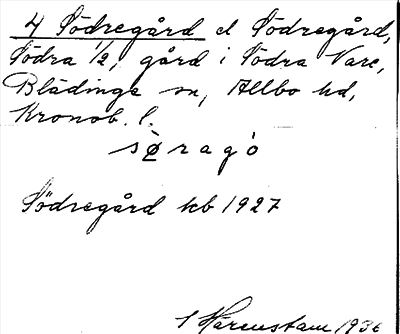 4 Södregård el Södregård,
Södra 1/2, gård i Södra Vare,
Blädinge sn, Allbo hd,
Kronob. l.
sø̀ragó
Södregård kb 1927
I Härenstam 1936